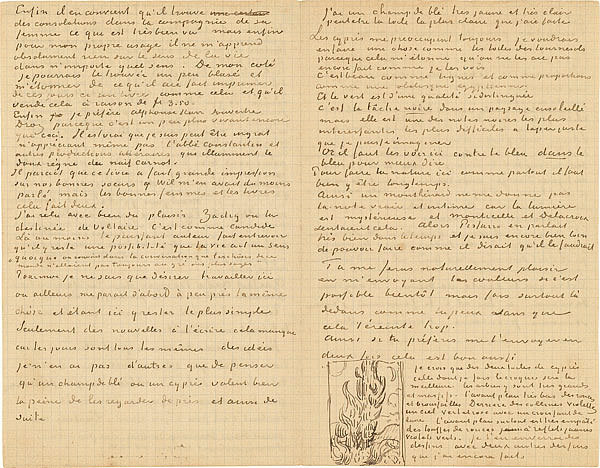 Enfin il en convient qu'il trouve
des consolations dans la compagnie de sa
femme ce qui est très bien vu mais enfin
pour mon propre usage il ne m'apprend
absolument rien sur le sens de la vie
dans n'importe quel sens. De mon coté
je pourrais le trouver un peu blasé et
m'étonner de ce qu'il ait fait imprimer
de ces jours ci un livre comme cela et qu'il
vende cela à raison de fr 3.50.
Enfin je préfère alphonse Karr Souvestre
Droz parceque c'est un peu plus vivant encore
que ceci. Il est vrai que je suis peut être ingrat
n'appréciant même pas l'abbé Constantin et
autres productions littéraires qui illuminent le
doux règne du naïf Carnot.
Il parait que ce livre a fait grande impression
sur nos bonnes soeurs Wil m'en avait du moins
parlé mais les bonnes femmes et les livres
cela fait deux.
J'ai relu avec bien du plaisir Zadig ou la
destinée de Voltaire. C'est comme Candide
Là au moins le puissant auteur fait entrevoir
qu'il y reste une possibilité que la vie ait un sens
quoique on convint dans la conversation que les choses de ce
monde n'allaient pas toujours au gré des plus sages.
Pour moi je ne sais que désirer travailler ici
ou ailleurs me parait d'abord à peu près la même
chose et étant ici y rester le plus simple
Seulement des nouvelles à t'écrire cela manque
car les jours sont tous les mêmes des idées
je n'en ai pas d'autres que de penser
qu'un champ de blé ou un cyprès valent bien
la peine de les regarder de près et ainsi de
suite
J'ai un champ de blé très jaune et très clair
peut être la toile la plus claire que j'ai faite
Les cyprès me préoccupent toujours je voudrais
en faire une chose comme les toiles des tournesols
parceque cela m'étonne qu'on ne les ait pas
encore fait comme je les vois
C'est beau comme lignes et comme proportions
comme une obélisque égyptienne.
Et le vert est d'une qualité si distinguée.
C'est la tâche noire dans un paysage ensoleillé
mais elle est une des notes noires les plus
intéressantes les plus difficiles à taper juste
que je puisse imaginer
Or il faut les voir ici contre le bleu dans le
bleu pour mieux dire
Pour faire la nature ici comme partout il faut
bien y être longtemps.
Ainsi un monthénard ne me donne pas
la note vraie et intime car la lumière
est mystérieuse et monticelli et Delacroix
sentaient cela. Alors Pissaro en parlait
très bien dans le temps et je suis encore bien loin
de pouvoir faire comme il disait qu'il le faudrait
Tu me feras naturellement plaisir
en m'envoyant les couleurs si c'est
possible bientôt mais fais surtout là
dedans comme tu peux sans que
cela t'éreinte trop.
ainsi si tu préfères me l'envoyer en
deux fois cela est bon aussi
Je crois que des deux toiles de cyprès
celle dont je fais le croquis sera la
meilleure. Les arbres y sont très grands
et massifs. L'avant plan très bas des ronces
et broussailles Derrière des collines violettes
un ciel vert et rose avec un croissant de
lune. L'avant plan surtout est très empâté
des touffes de ronces à reflets jaunes
violets verts. Je t'en enverrai des
dessins avec deux autres dessins
que j'ai encore faits